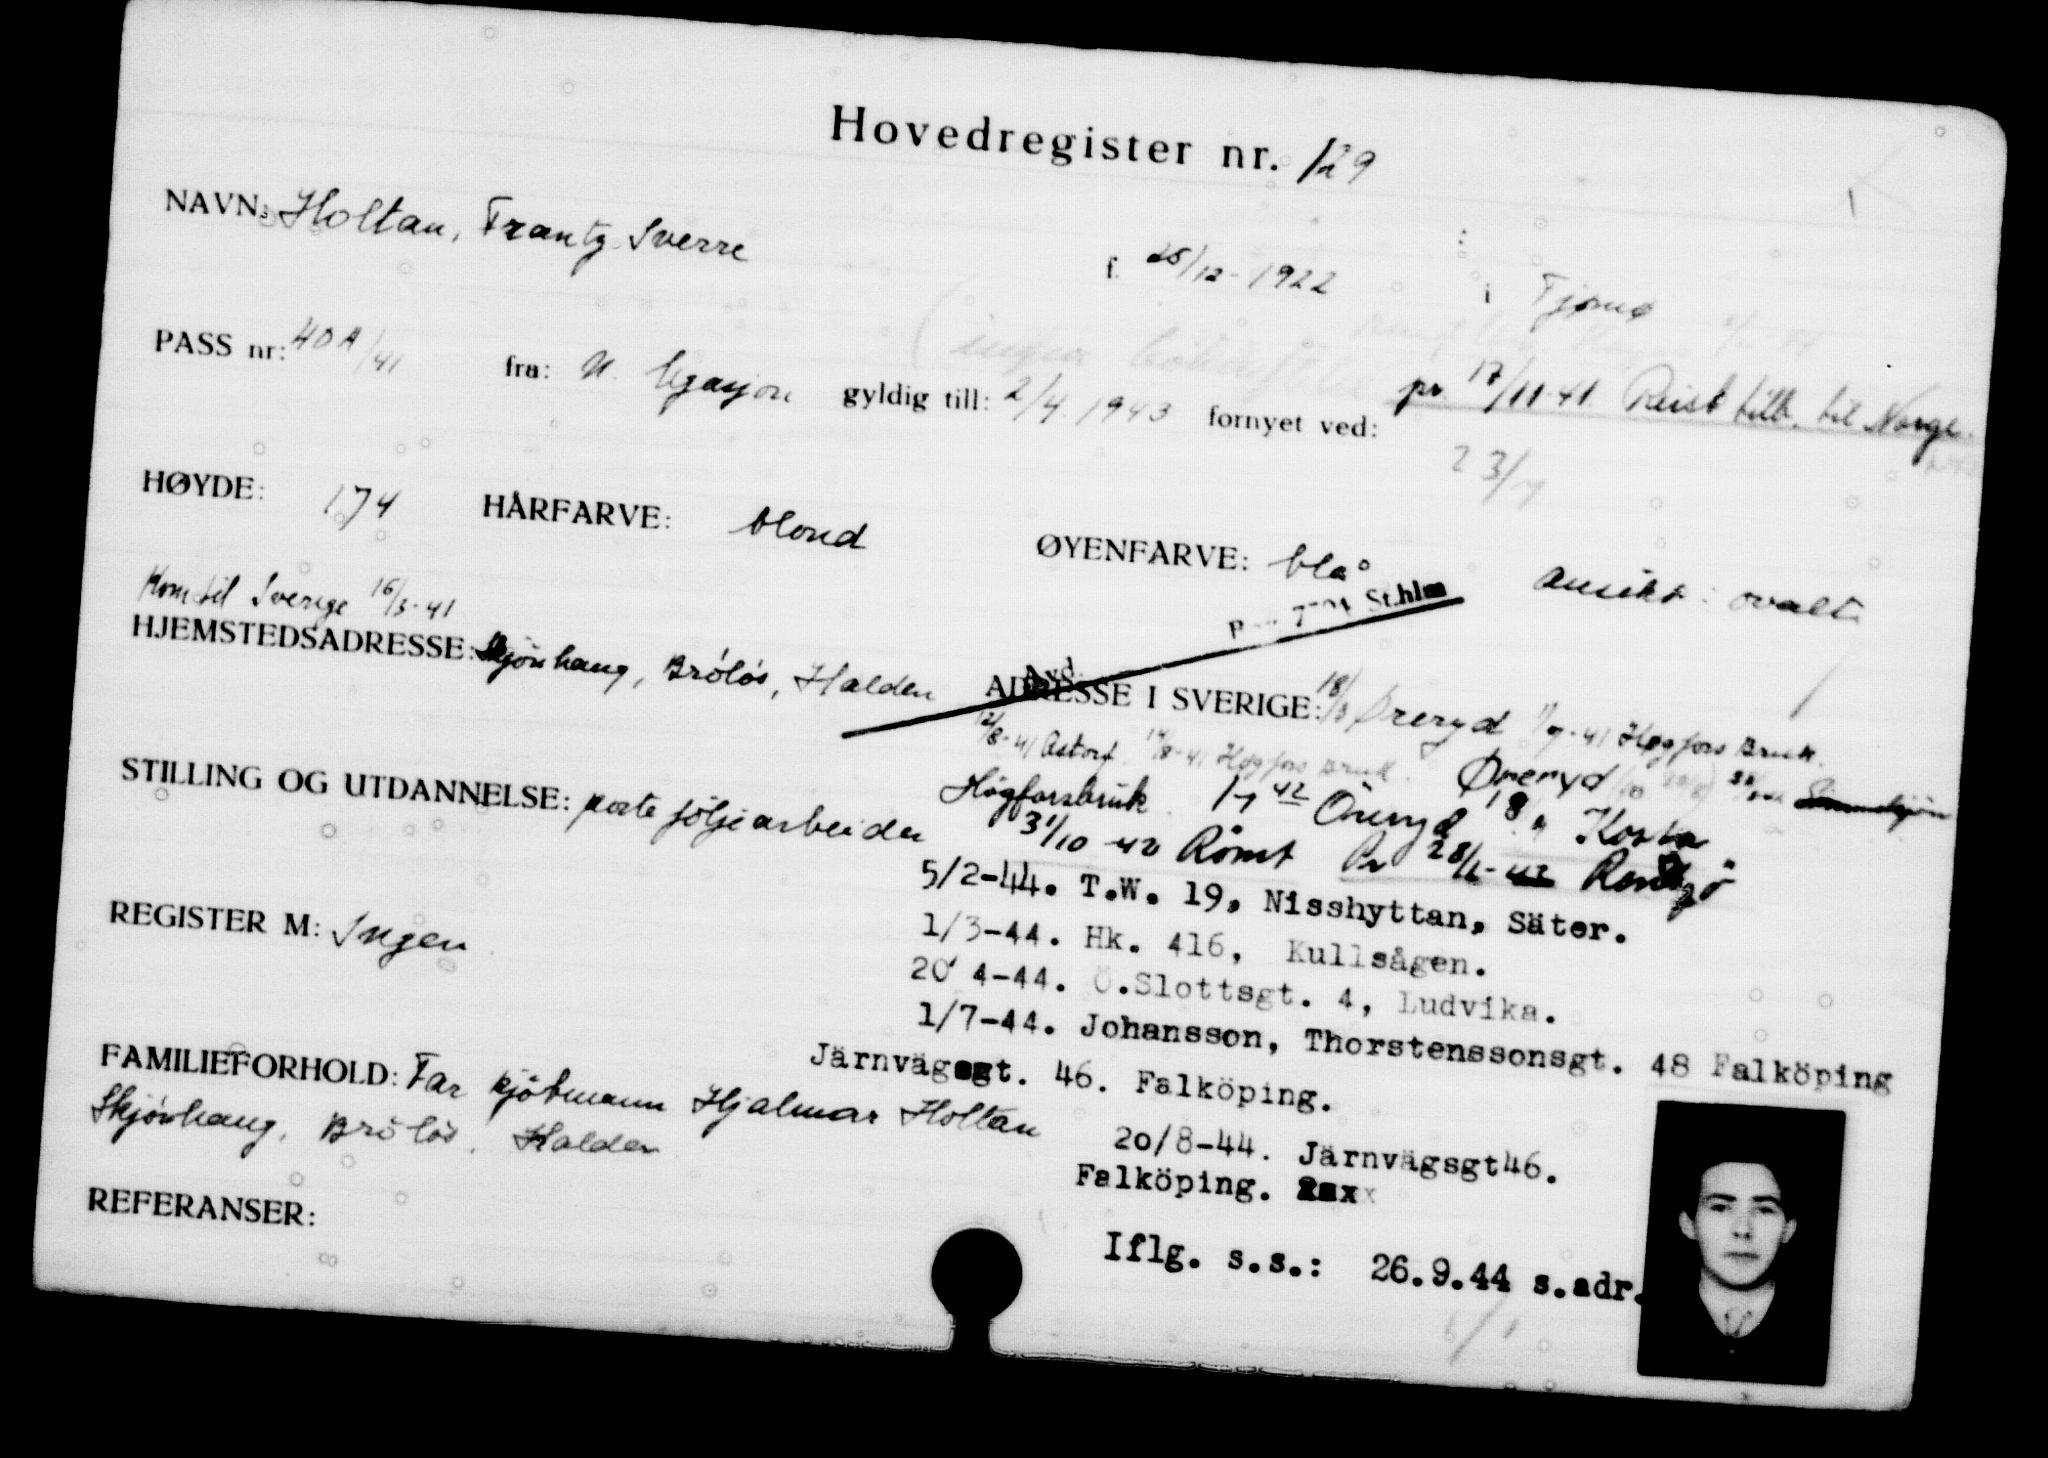 Hovedregister nr. 129
NAVN: Holtan, Frantz Sverre f. 25/12-1922 i Tjømø
PASS nr: 40A/41 fra: N. legasjon gyldig till: 2/4 1943 fornyet ved: pr 17/11-41. Reist tilb. til Norge.
23/7
HØYDE: 174 HÅRFARVE: blond ØYENFARVE: blå ansikt: ovalt
Kom til Sverige 16/3-41
St.hlm
Avd.
HJEMSTEDSADRESSE: Skjönhaug, Brölös, Halden ADRESSE I SVERIGE: 18/3 Øreryd 1/7-41 Høgfors Bruk.
12/8-41 Astorp 14/8-41 Høgfors Bruk. Øreryd
STILLING OG UTDANNELSE: parteföljearbeider Högforsbruk. 1/7 42 Öreryd 18/ Kosta
31/10 42 Römt Pr 28/1-43 Rensjö
5/2-44. T.W. 19, Nisshyttan, Säter.
REGISTER M: Ingen
1/3-44. Hk. 416, Kullsågen.
20 4-44. Ö.Slottsgt. 4, Ludvika.
1/7-44. Johansson, Thorstenssonsgt. 48 Falköping
Järnvägsgt. 46. Falköping.
FAMILIEFORHOLD: Far kjöbmann Hjalmar Holtan
Skjönhaug, Brölös, Halden
20/8-44. Järnvägsgt46.
Falköping.
REFERANSER:
Iflg. s.s.: 26.9.44 s.adr.
6/1